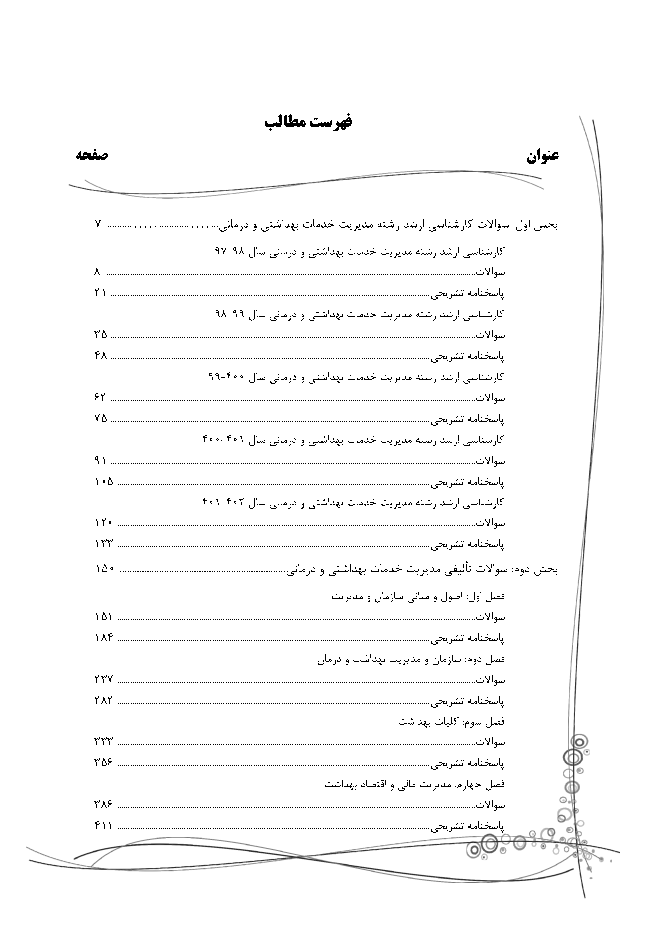 فهرست مطالب
عنوان صفحه
بخش اول: سوالات کارشناسی ارشد رشته مدیریت خدمات بهداشتی و درمانی ........ ۷
کارشناسی ارشد رشته مدیریت خدمات بهداشتی و درمانی سال ۹۸-۹۷
سوالات ........ ۸
پاسخنامه تشریحی ........ ۲۱
کارشناسی ارشد رشته مدیریت خدمات بهداشتی و درمانی سال ۹۹-۹۸
سوالات ........ ۳۵
پاسخنامه تشریحی ........ ۴۸
کارشناسی ارشد رشته مدیریت خدمات بهداشتی و درمانی سال ۴۰۰-۹۹
سوالات ........ ۶۲
پاسخنامه تشریحی ........ ۷۵
کارشناسی ارشد رشته مدیریت خدمات بهداشتی و درمانی سال ۴۰۱-۴۰۰
سوالات ........ ۹۱
پاسخنامه تشریحی ........ ۱۰۵
کارشناسی ارشد رشته مدیریت خدمات بهداشتی و درمانی سال ۴۰۲-۴۰۱
سوالات ........ ۱۲۰
پاسخنامه تشریحی ........ ۱۳۳
بخش دوم: سوالات تألیفی مدیریت خدمات بهداشتی و درمانی ........ ۱۵۰
فصل اول: اصول و مبانی سازمان و مدیریت
سوالات ........ ۱۵۱
پاسخنامه تشریحی ........ ۱۸۴
فصل دوم: سازمان و مدیریت بهداشت و درمان
سوالات ........ ۲۳۷
پاسخنامه تشریحی ........ ۲۸۲
فصل سوم: کلیات بهداشت
سوالات ........ ۳۳۳
پاسخنامه تشریحی ........ ۳۵۶
فصل چهارم: مدیریت مالی و اقتصاد بهداشت
سوالات ........ ۳۸۶
پاسخنامه تشریحی ........ ۴۱۱